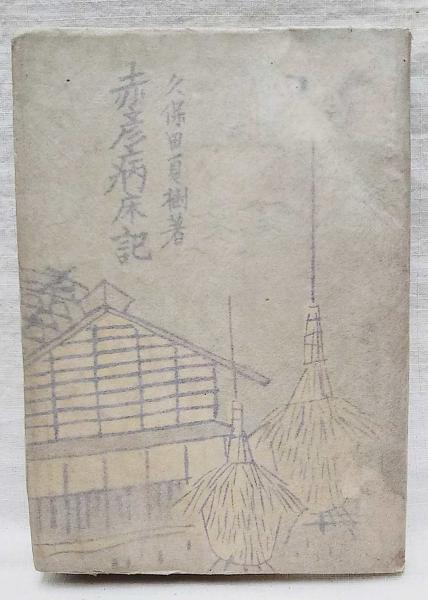 久保田夏樹著
赤彦病床記